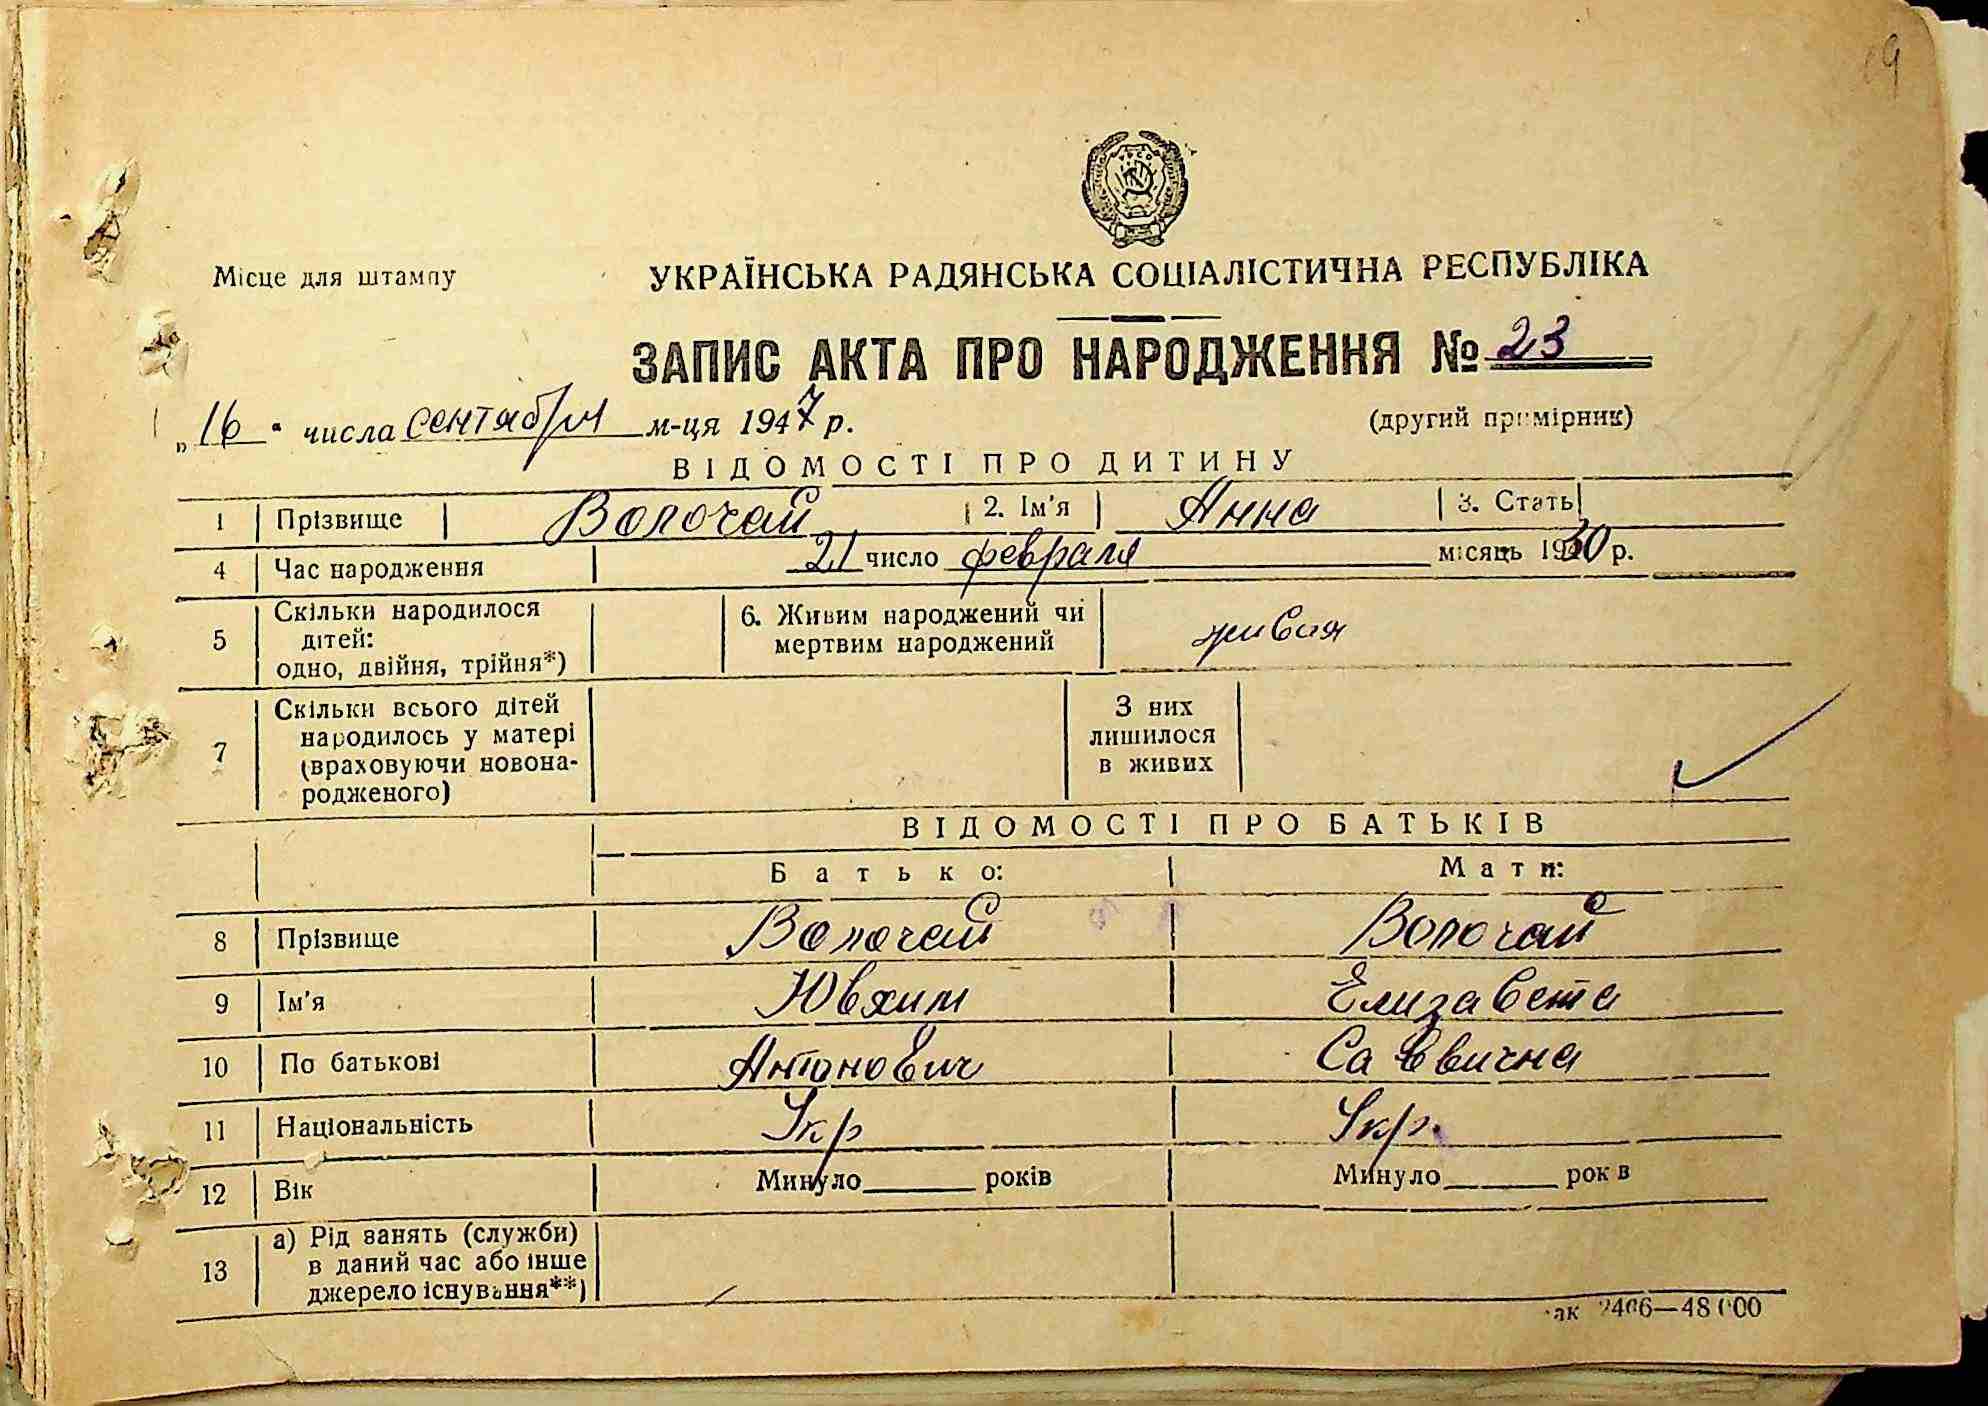 19
Місце для штампу
УКРАЇНСЬКА РАДЯНСЬКА СОЦІАЛІСТИЧНА РЕСПУБЛІКА
ЗАПИС АКТА ПРО НАРОДЖЕННЯ № 23
„16" числа сентября м-ця 1947 р.
(другий примірник)
ВІДОМОСТІ ПРО ДИТИНУ
1 Прізвище Волочай 2. Ім'я Анна 3. Стать
4 Час народження 21 число февраля місяць 1930 р.
5 Скільки народилося дітей: одно, двійня, трійня*) 6. Живим народжений чи мертвим народжений живая
7 Скільки всього дітей народилось у матері (враховуючи новонародженого) З них лишилося в живих
ВІДОМОСТІ ПРО БАТЬКІВ
Батько: Мати:
8 Прізвище Волочай Волочай
9 Ім'я Ювхим Елизавета
10 По батькові Антонович Саввична
11 Національність Укр Укр.
12 Вік Минуло років Минуло років
13 а) Рід занять (служби) в даний час або інше джерело існування**)
Зак 2466—48000